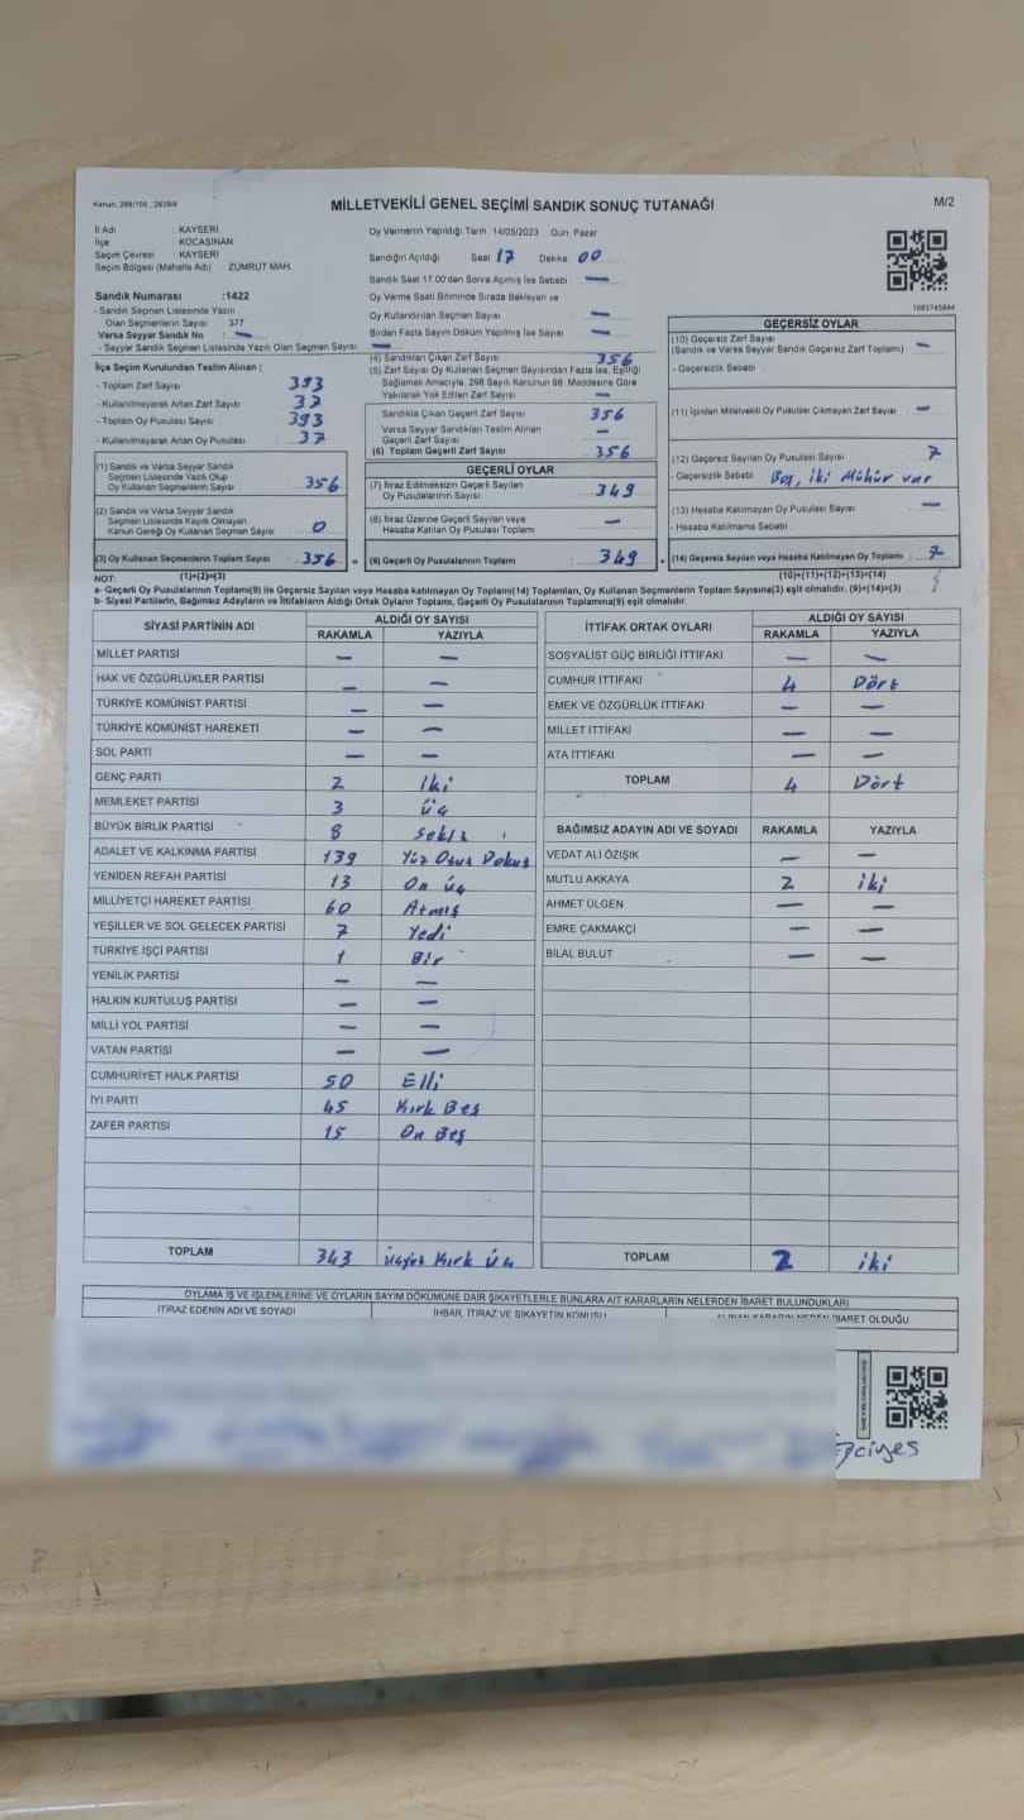 MİLLETVEKİLİ GENEL SEÇİMİ SANDIK SONUÇ TUTANAĞI
M/2
İl Adı : KAYSERİ
İlçe : KOCASİNAN
Seçim Çevresi : KAYSERİ
Seçim Bölgesi (Mahalle Adı) ZÜMRÜT MAH.
Sandık Numarası :1422
- Sandık Seçmen Listesinde Yazılı
Olan Seçmenlerin Sayısı : 377
Varsa Seyyar Sandık No —
- Seyyar Sandık Seçmen Listesinde Yazılı Olan Seçmen Sayısı —
İlçe Seçim Kurulundan Teslim Alınan :
- Toplam Zarf Sayısı 393
- Kullanılmayarak Artan Zarf Sayısı 37
- Toplam Oy Pusulası Sayısı 393
- Kullanılmayarak Artan Oy Pusulası 37
(1) Sandık ve Varsa Seyyar Sandık
Seçmen Listesinde Yazılı Olup
Oy Kullanan Seçmenlerin Sayısı 356
(2) Sandık ve Varsa Seyyar Sandık
Seçmen Listesinde Kayıtlı Olmayan
Kanun Gereği Oy Kullanan Seçmen Sayısı 0
(3) Oy Kullanan Seçmenlerin Toplam Sayısı 356
(1)+(2)=(3)
Oy Vermenin Yapıldığı Tarih 14/05/2023 Gün Pazar
Sandığın Açıldığı Saat 17 Dakika 00
Sandık Saat 17:00'dan Sonra Açılmış İse Sebebi —
Oy Verme Saati Bitiminde Sırada Bekleyen ve
Oy Kullandırılan Seçmen Sayısı —
Birden Fazla Sayım Döküm Yapılmış İse Sayısı —
(4) Sandıktan Çıkan Zarf Sayısı 356
(5) Zarf Sayısı Oy Kullanan Seçmen Sayısından Fazla İse, Eşitliği
Sağlamak Amacıyla, 298 Sayılı Kanunun 98. Maddesine Göre
Yakılarak Yok Edilen Zarf Sayısı —
Sandıkta Çıkan Geçerli Zarf Sayısı 356
Varsa Seyyar Sandıktan Teslim Alınan
Geçerli Zarf Sayısı —
(6) Toplam Geçerli Zarf Sayısı 356
GEÇERLİ OYLAR
(7) İtiraz Edilmeksizin Geçerli Sayılan
Oy Pusulalarının Sayısı 349
(8) İtiraz Üzerine Geçerli Sayılan veya
Hesaba Katılan Oy Pusulası Toplamı —
(9) Geçerli Oy Pusulalarının Toplamı 349
GEÇERSİZ OYLAR
(10) Geçersiz Zarf Sayısı
(Sandık ve Varsa Seyyar Sandık Geçersiz Zarf Toplamı) —
- Geçersizlik Sebebi
(11) İçinden Milletvekili Oy Pusulası Çıkmayan Zarf Sayısı —
(12) Geçersiz Sayılan Oy Pusulası Sayısı 7
- Geçersizlik Sebebi Boş, iki Mühür var
(13) Hesaba Katılmayan Oy Pusulası Sayısı —
- Hesaba Katılmama Sebebi
(14) Geçersiz Sayılan veya Hesaba Katılmayan Oy Toplamı 7
(10)+(11)+(12)+(13)=(14)
NOT:
a- Geçerli Oy Pusulalarının Toplamı(9) ile Geçersiz Sayılan veya Hesaba katılmayan Oy Toplamı(14) Toplamları, Oy Kullanan Seçmenlerin Toplam Sayısına(3) eşit olmalıdır. (9)+(14)=(3)
b- Siyasi Partilerin, Bağımsız Adayların ve İttifakların Aldığı Ortak Oyların Toplamı, Geçerli Oy Pusulalarının Toplamına(9) eşit olmalıdır.
SİYASİ PARTİNİN ADI ALDIĞI OY SAYISI
RAKAMLA YAZIYLA
MİLLET PARTİSİ — —
HAK VE ÖZGÜRLÜKLER PARTİSİ — —
TÜRKİYE KOMÜNİST PARTİSİ — —
TÜRKİYE KOMÜNİST HAREKETİ — —
SOL PARTİ — —
GENÇ PARTİ 2 İki
MEMLEKET PARTİSİ 3 Üç
BÜYÜK BİRLİK PARTİSİ 8 Sekiz
ADALET VE KALKINMA PARTİSİ 139 Yüz Otuz Dokuz
YENİDEN REFAH PARTİSİ 13 On üç
MİLLİYETÇİ HAREKET PARTİSİ 60 Atmış
YEŞİLLER VE SOL GELECEK PARTİSİ 7 Yedi
TÜRKİYE İŞÇİ PARTİSİ 1 Bir
YENİLİK PARTİSİ — —
HALKIN KURTULUŞ PARTİSİ — —
MİLLİ YOL PARTİSİ — —
VATAN PARTİSİ — —
CUMHURİYET HALK PARTİSİ 50 Elli
İYİ PARTİ 45 Kırk Beş
ZAFER PARTİSİ 15 On Beş
TOPLAM 343 üçyüz Kırk Üç
İTTİFAK ORTAK OYLARI ALDIĞI OY SAYISI
RAKAMLA YAZIYLA
SOSYALİST GÜÇ BİRLİĞİ İTTİFAKI — —
CUMHUR İTTİFAKI 4 Dört
EMEK VE ÖZGÜRLÜK İTTİFAKI — —
MİLLET İTTİFAKI — —
ATA İTTİFAKI — —
TOPLAM 4 Dört
BAĞIMSIZ ADAYIN ADI VE SOYADI RAKAMLA YAZIYLA
VEDAT ALİ ÖZIŞIK — —
MUTLU AKKAYA 2 iki
AHMET ÜLGEN — —
EMRE ÇAKMAKÇI — —
BİLAL BULUT — —
TOPLAM 2 iki
OYLAMA İŞ VE İŞLEMLERİNE VE OYLARIN SAYIM DÖKÜMÜNE DAİR ŞİKAYETLERLE BUNLARA AİT KARARLARIN NELERDEN İBARET BULUNDUKLARI
İTİRAZ EDENİN ADI VE SOYADI İHBAR, İTİRAZ VE ŞİKAYETİN KONUSU İBARET OLDUĞU
Erciyes